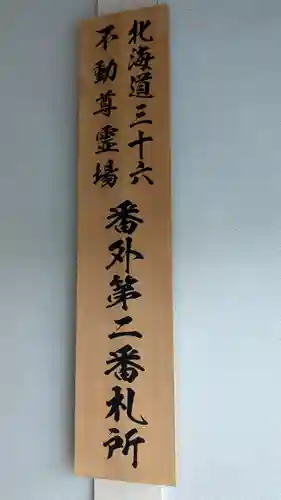 北海道三十六
不動尊霊場
番外第二番札所